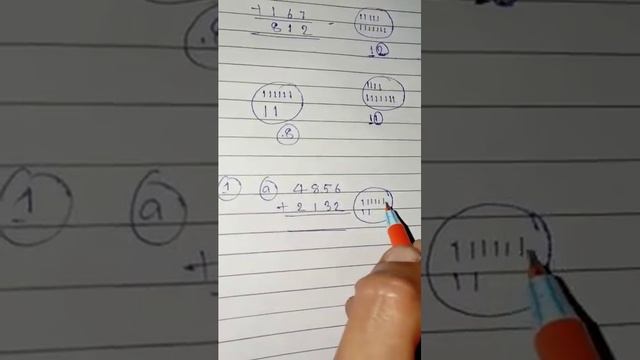 + 1 6 7
8 1 2
12
.8
11
1 a 4856
+ 2132